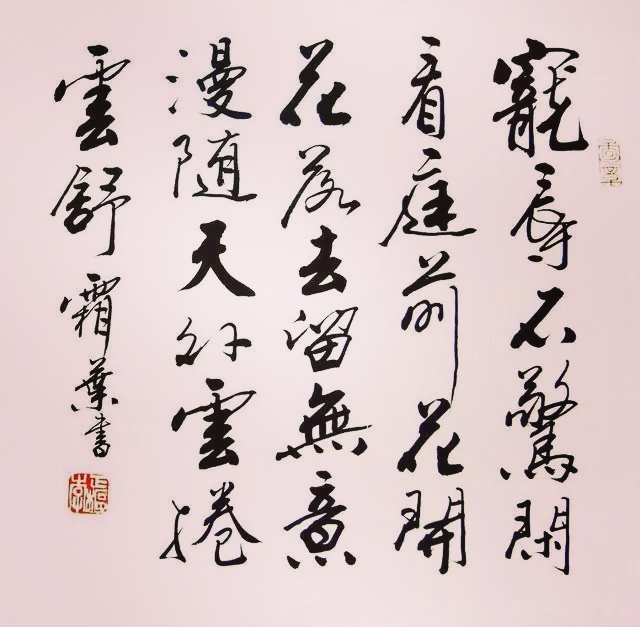 寵辱不驚閑
看庭前花開
花落去留無意
漫隨天外雲捲
雲舒霜葉書